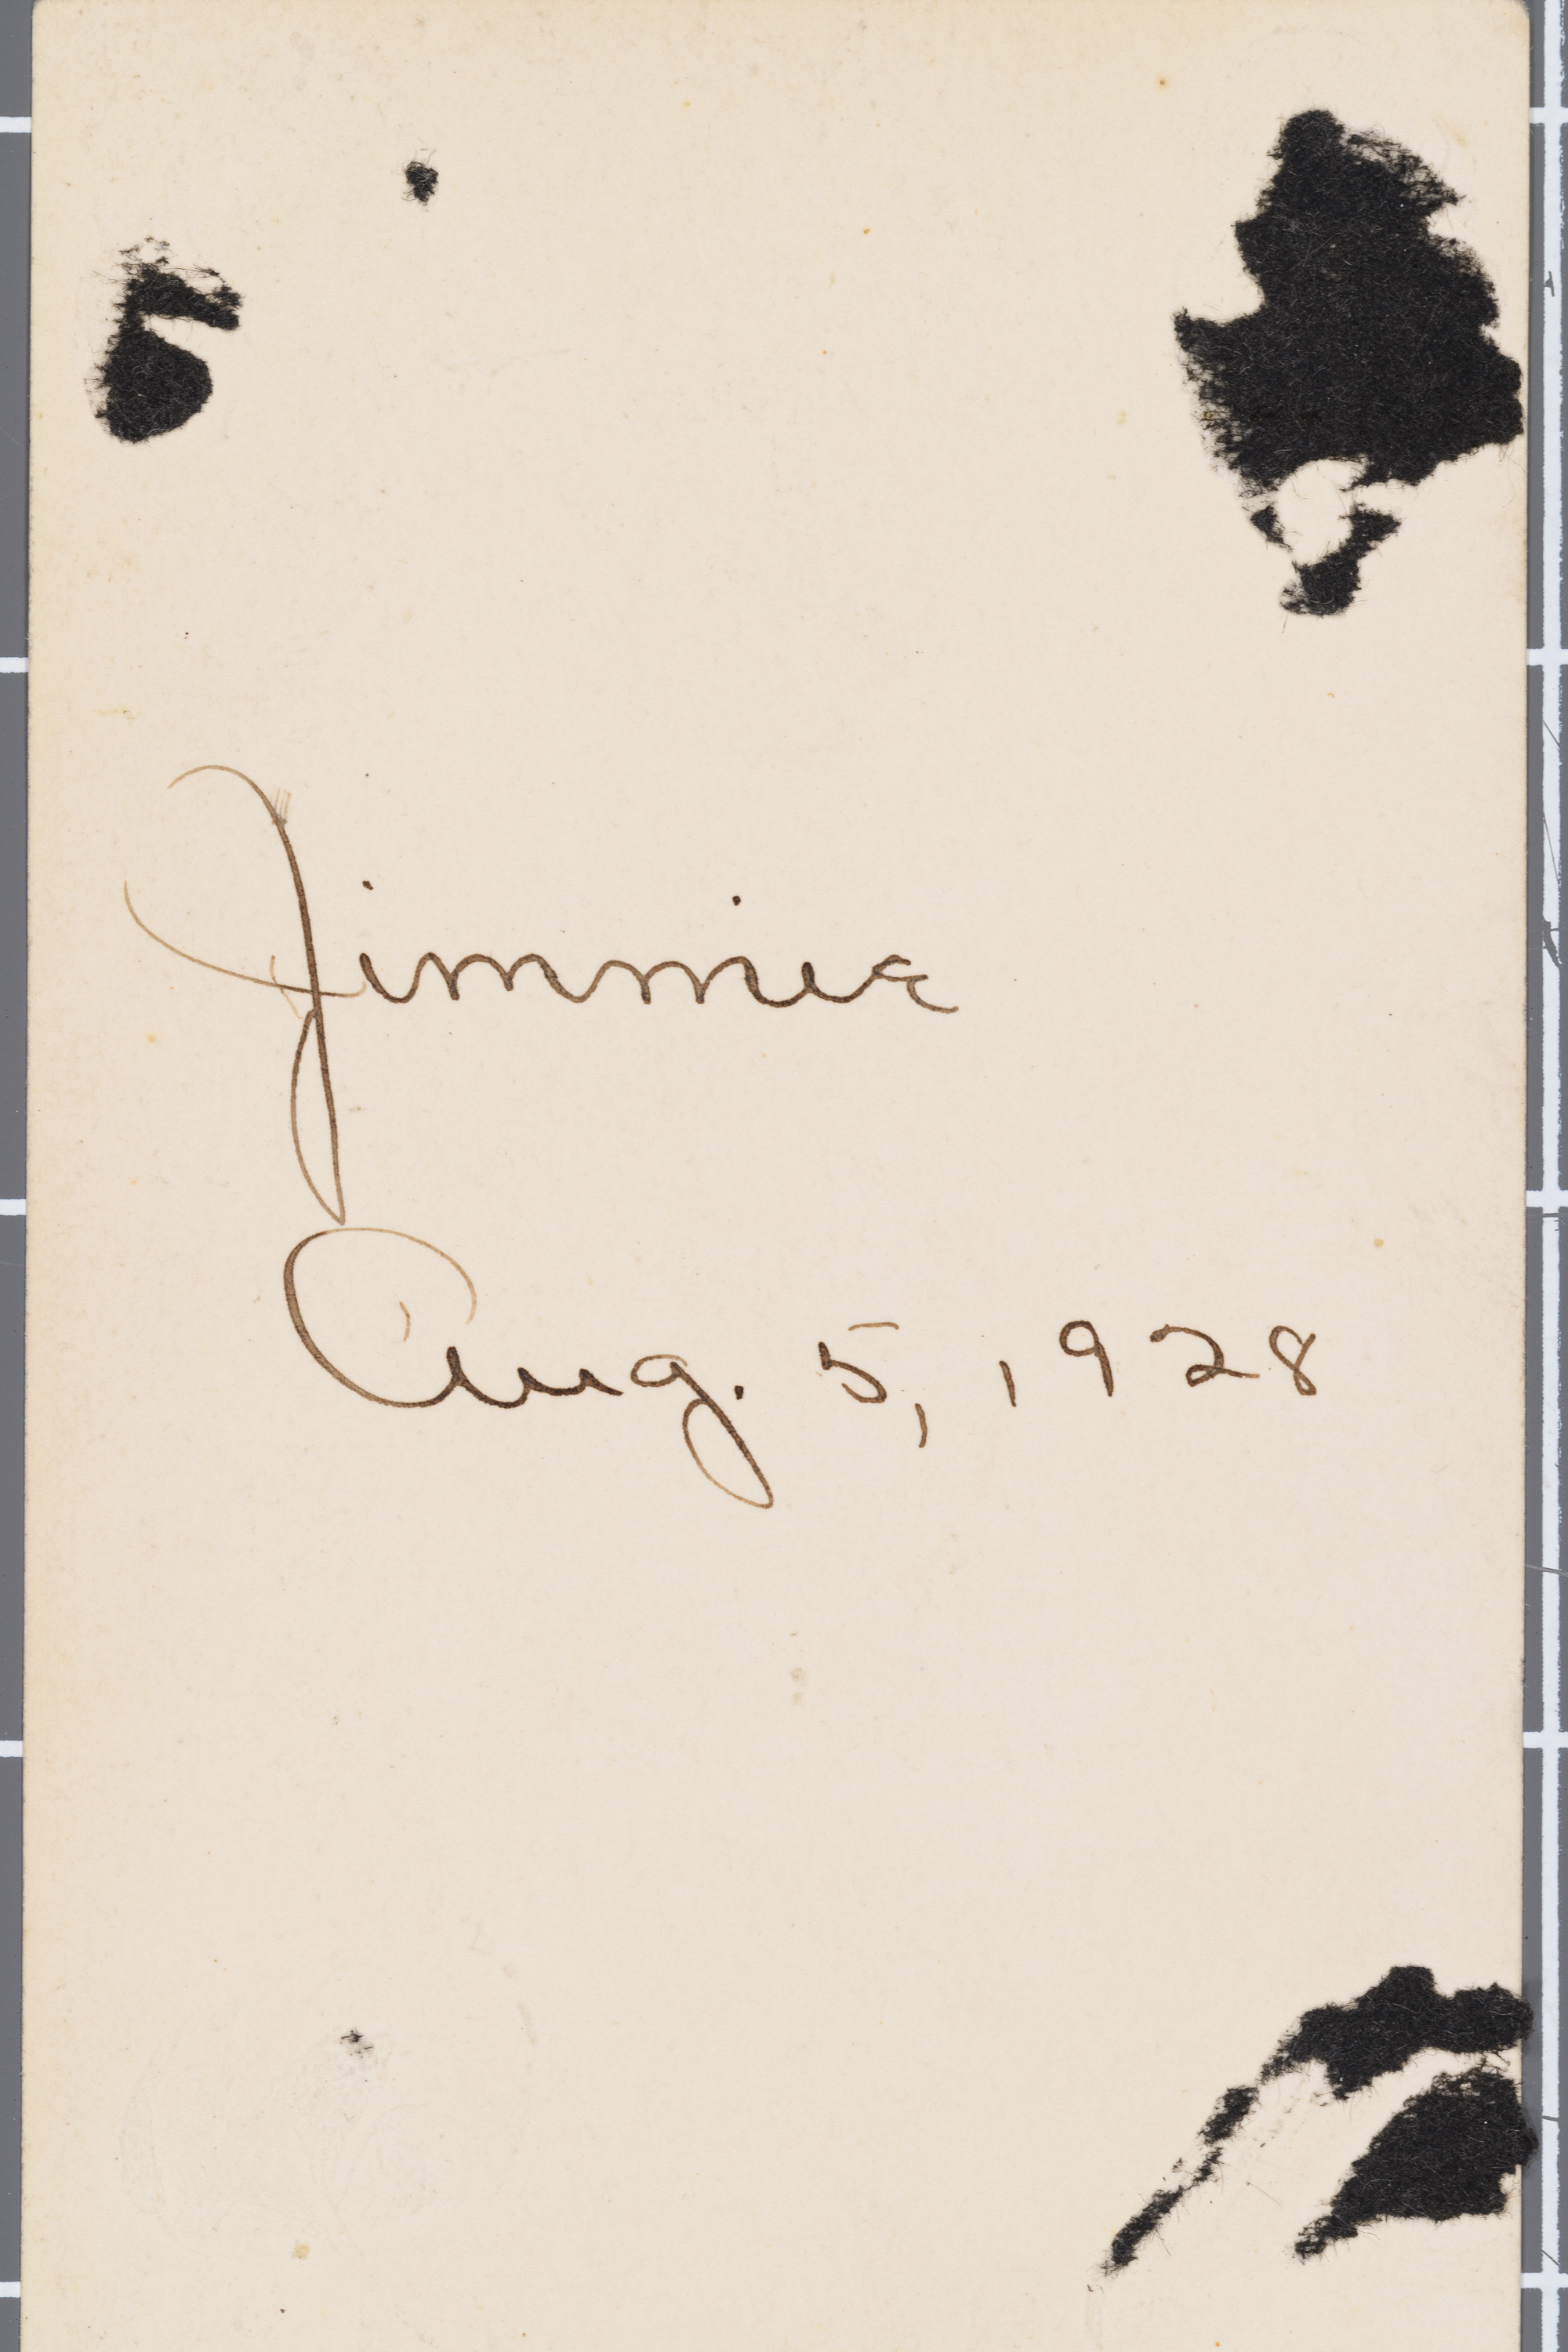 Jimmie
Aug. 5, 1928